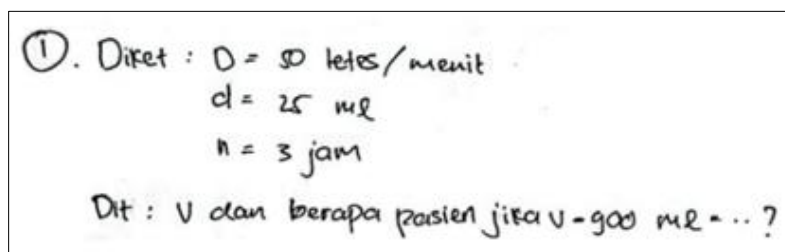 ①. Diket : D = 50 tetes/menit
d = 25 ml
n = 3 jam
Dit : V dan berapa pasien jika v = 900 ml = ...?